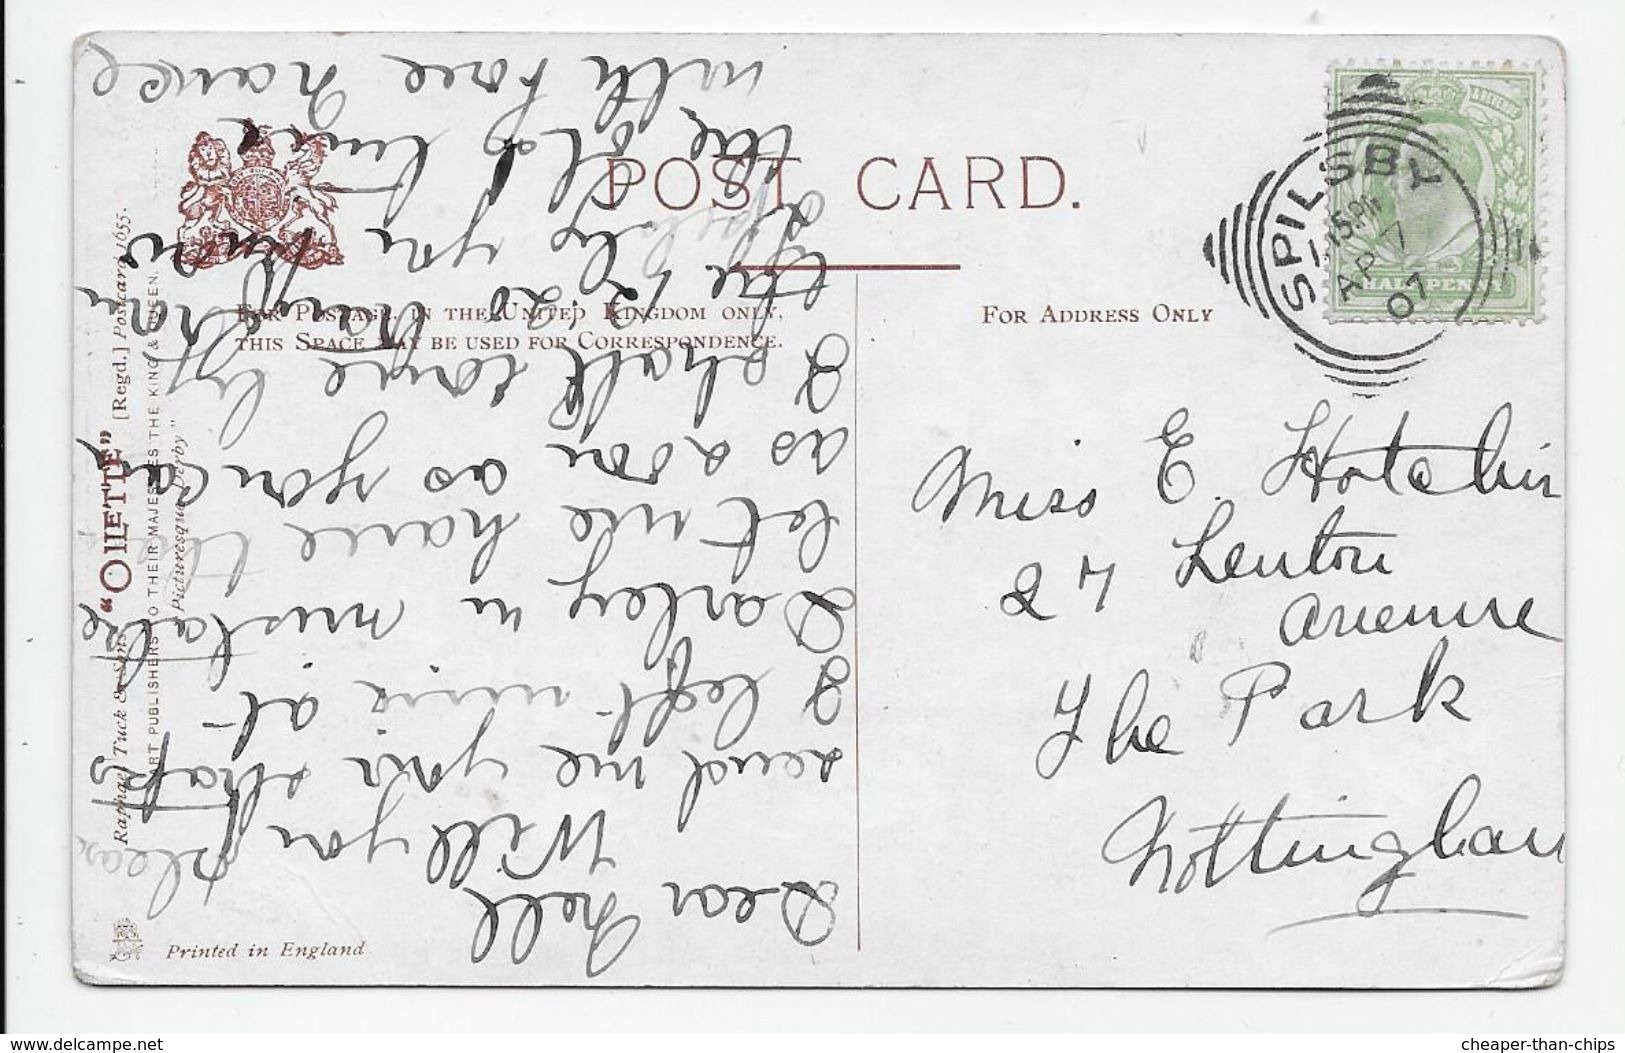 POST CARD.
FOR POSTAGE IN THE UNITED KINGDOM ONLY,
THIS SPACE MAY BE USED FOR CORRESPONDENCE.
FOR ADDRESS ONLY
SPILSBY
AP 7
07
HALFPENNY
Miss E. Hotchin
27 Lenton
Avenue
The Park
Nottingham
Dear Nell
Will you please
send me your straps
I left mine at
Darley in mistake
let me have the
as soon as you can
I shall come by
the 1.20 train from
you know
the old line
with love Nance
Raphael Tuck & Sons' "OILETTE" [Regd.] Postcard 1655.
ART PUBLISHERS TO THEIR MAJESTIES THE KING & QUEEN.
"Picturesque Derby"
Printed in England
cheaper-than-chips
www.delcampe.net